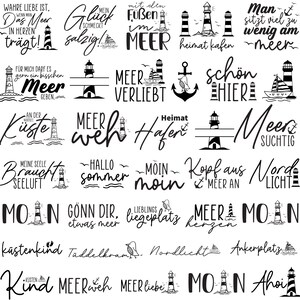 WAHRE LIEBE IST,
WENN MAN
Das Meer
IM HERZEN
trägt!
MEIN
Glück
SCHMECKT
salzig!
mit allen
Füßen
im
MEER
heimat hafen
Man
sitzt viel zu
wenig am
meer
FÜR MICH DARF ES
gern ein bisschen
Meer
SEIN.
MEER
VERLIEBT
schön
HIER
AN DER
Küste
MEER
weh
Heimat
Hafen
Meer
SÜCHTIG
MEINE SEELE
Braucht
SEELUFT
HALLO
sommer
MOIN
moin
Kopf aus
MEER AN
Nord
LICHT
MOIN
GÖNN DIR,
etwas meer
LIEBLINGS
liegeplatz
MEER
herzen
MOIN
küstenkind
Tüddelkram
Nordlicht
Ankerplatz
KÜSTEN
Kind
MEER weh
MEER liebe
MOIN
Ahoi